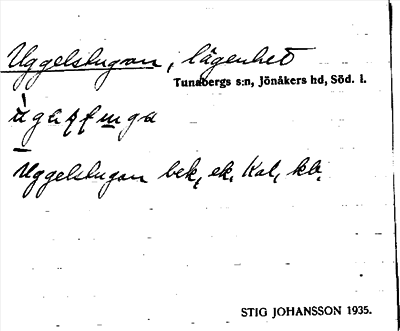 Uggelstugan, lägenhet
Tunabergs s:n, Jönåkers hd, Söd. l.
Uggelstugan bek, ek. Kal, kk.
STIG JOHANSSON 1935.